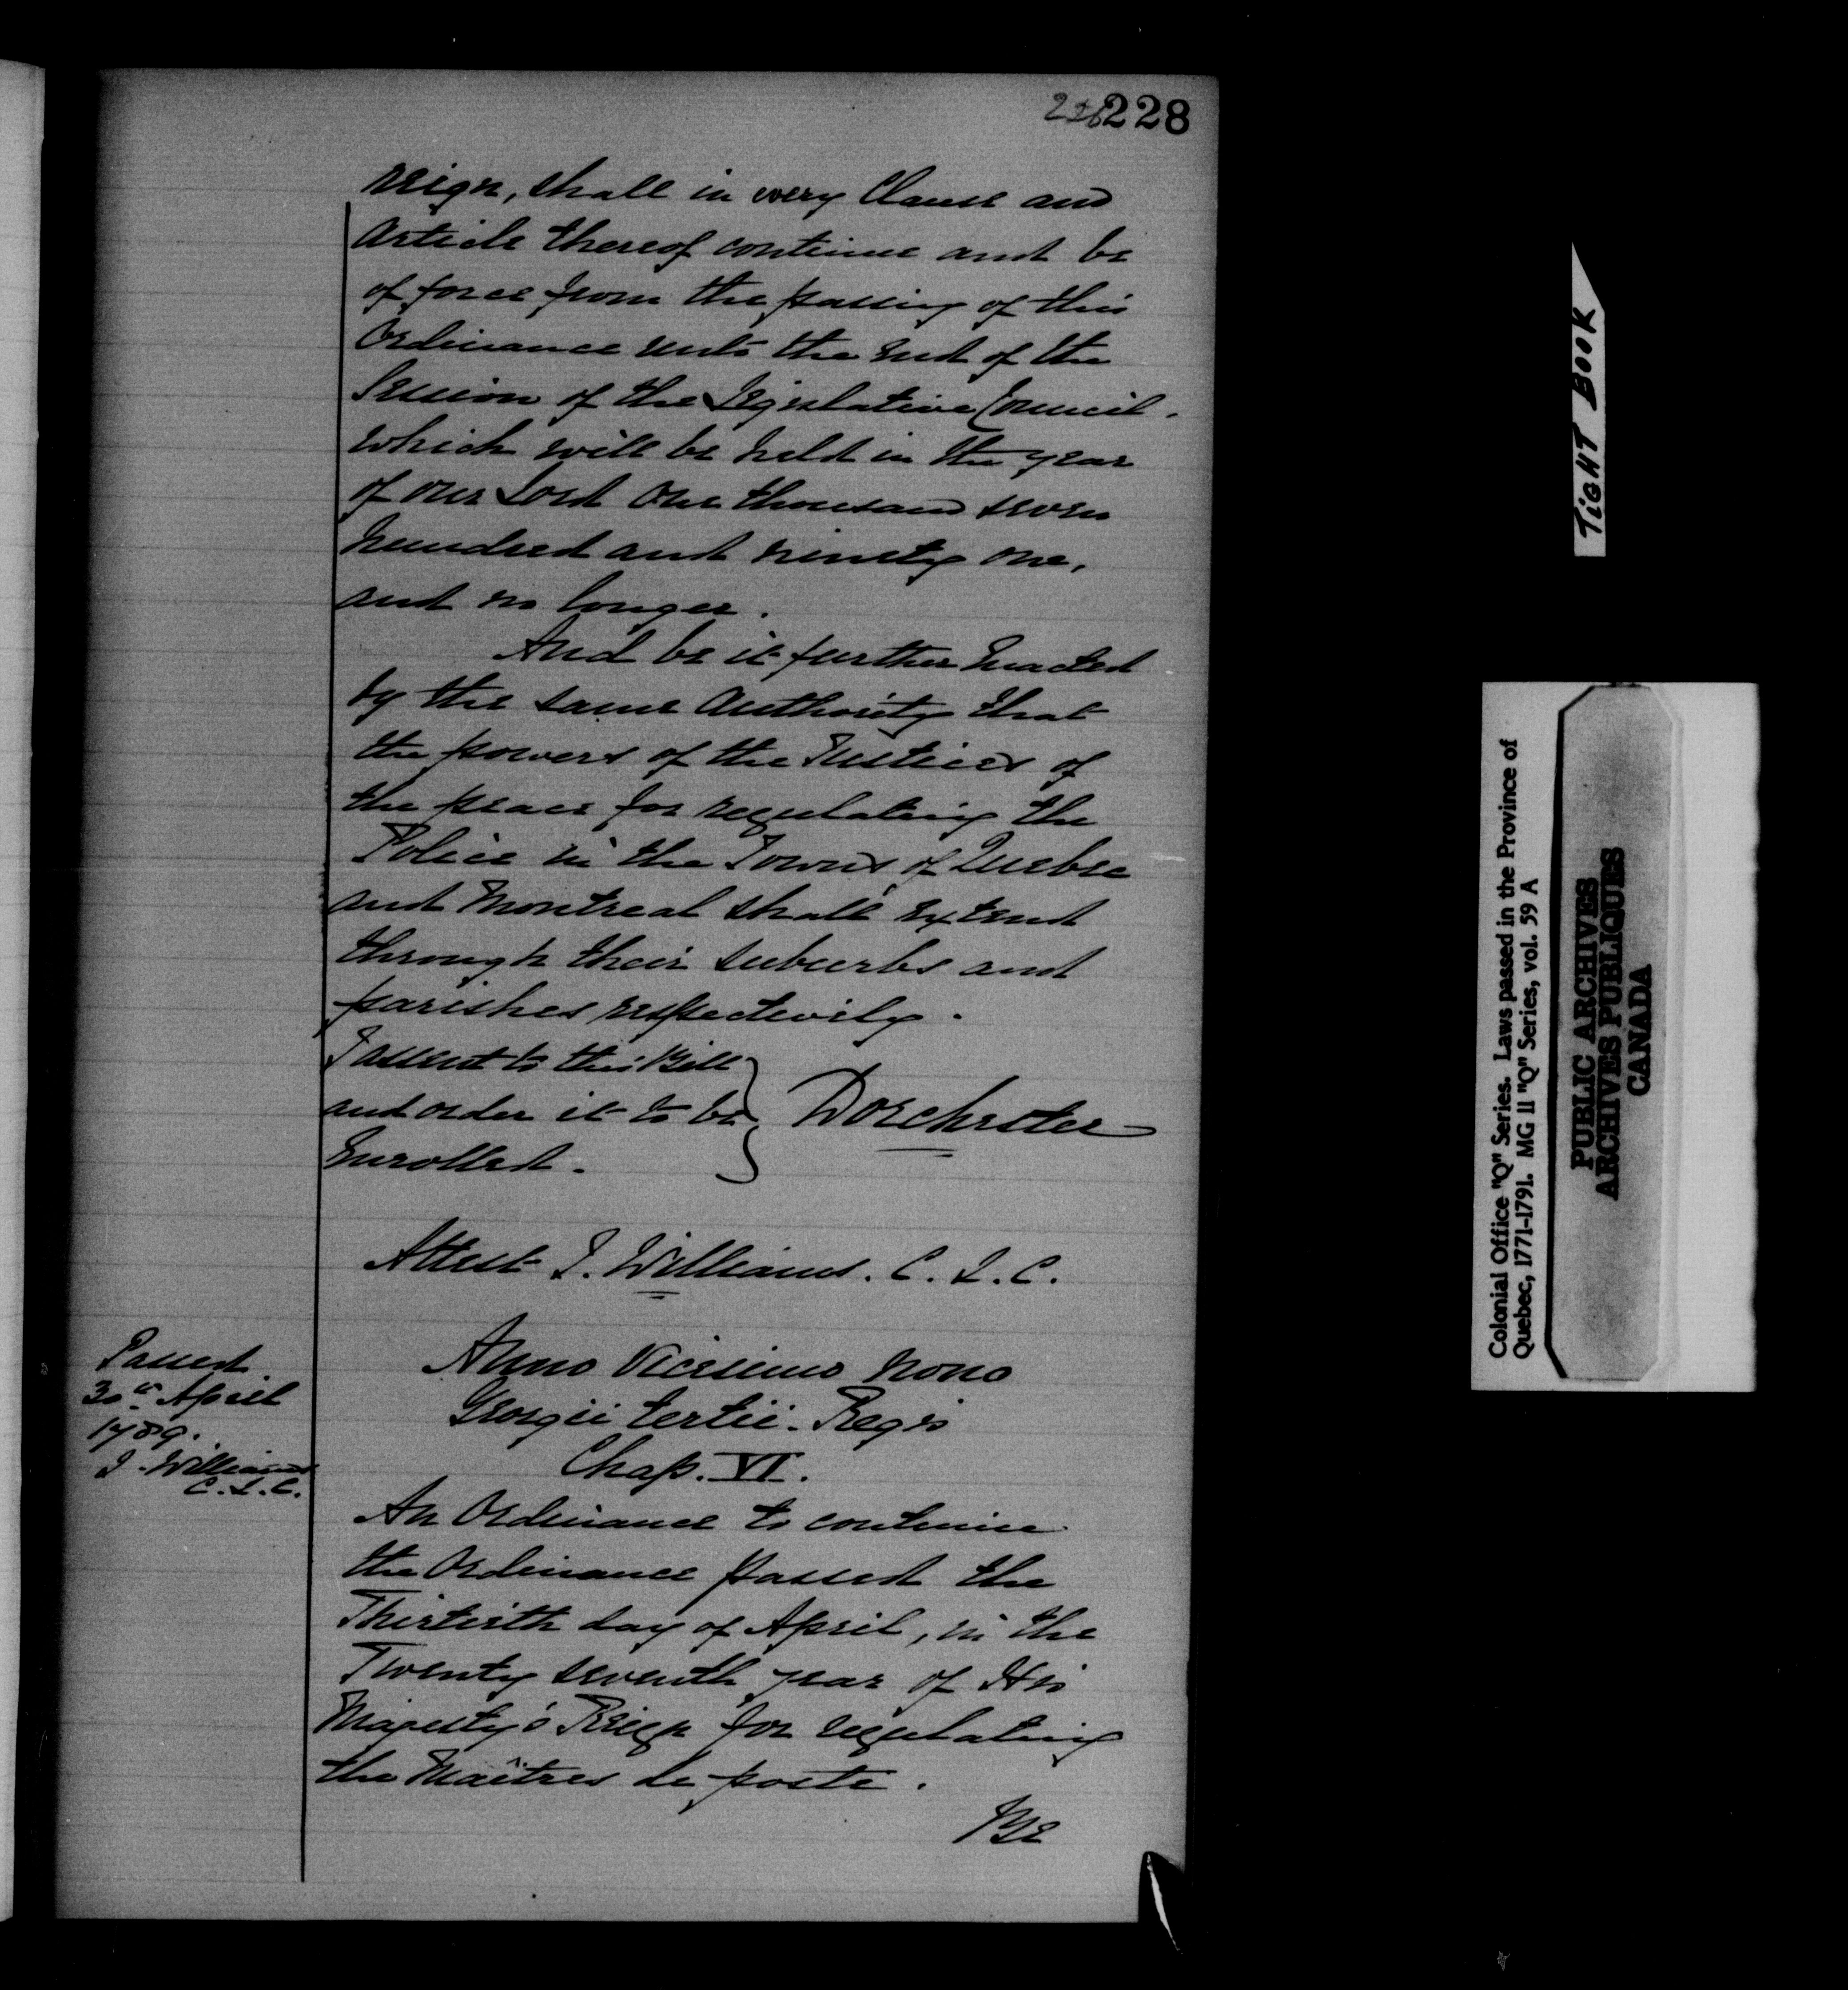 228
reign, shall in every Clause and
Article thereof continue and be
of force from the passing of this
Ordinance unto the End of the
Session of the Legislative Council.
which will be held in the year
of our Lord One thousand seven
hundred and ninety one,
and no longer.
And be it further Enacted
by the same Authority that
the powers of the Justices of
the peace for regulating the
Police in the Towns of Quebec
and Montreal shall extend
through their suburbs and
parishes respectively.
I assent to this Bill
and order it to be
Enrolled.
Dorchester
Attest J. Williams. C. L. C.
Passed
30th April
1789.
J. Williams
C. L. C.
Anno Vicesimo nono
Georgii tertii. Regis
Chap. VI.
An Ordinance to continue
the Ordinance passed the
Thirtieth day of April, in the
Twenty seventh year of His
Majesty's Reign for regulating
the Maîtres de poste.
Be
TiGHT BOOK
Colonial Office "Q" Series. Laws passed in the Province of
Quebec, 1771-1791. MG 11 "Q" Series, vol. 59 A
PUBLIC ARCHIVES
ARCHIVES PUBLIQUES
CANADA